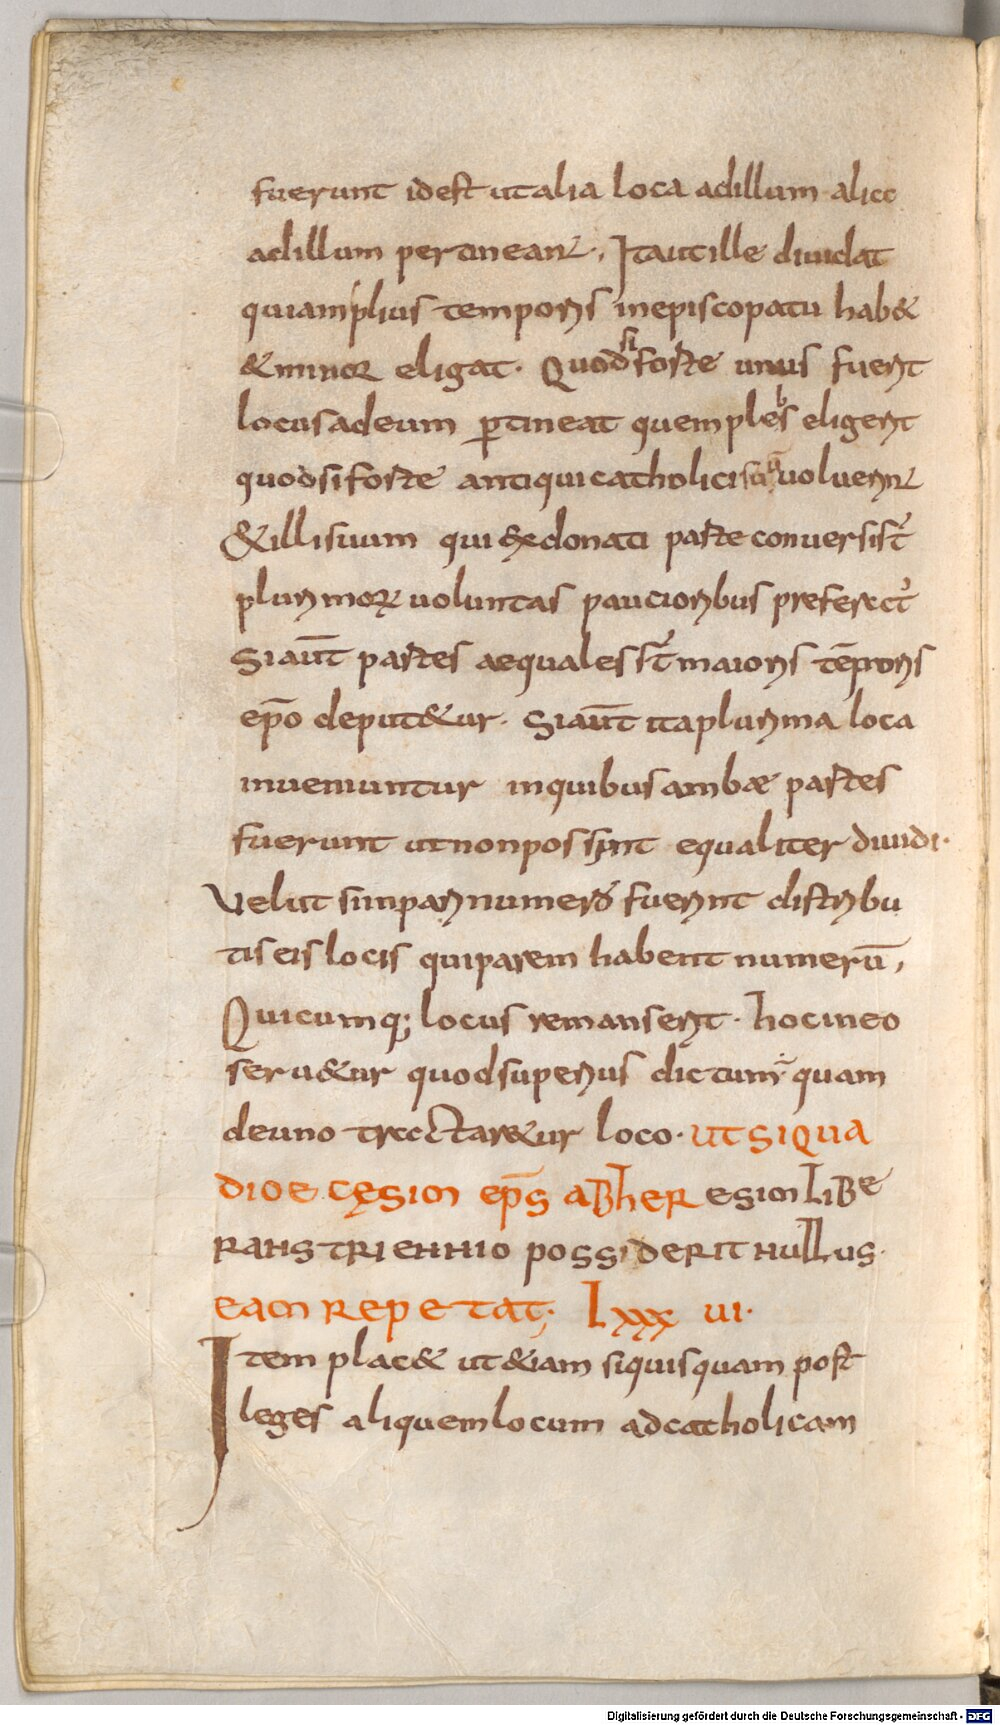 fuerunt idest utalia loca adillum alicc
adillum pertineant. Itautille diuidat
quiamplius temporis inepiscopatu hab&
&minor eligat. Quod si forte unus fuerit
locusadeum ꝑtineat quemplebs eligerit
quodsiforte antiquicatholici suū uoluerint
&illisuum qui exdonati parte conuersist̄
plurimorum uoluntas paucioribus preferet᷑
Siaūt partes aequales st̄ maioris tēporis
ep̄o deput&ur. Siaūt itaplurima loca
inueniuntur inquibusambæ partes
fuerunt utnonpossint equaliter diuidi.
Velut siinparinumero fuerint distribu
tis eis locis quiparem habent numerū,
Quicumq; locus remanserit. hocineo
seru&ur quodsuperius dictum ē quam
deuno trectar&ur loco. UTSIQUA
DIOECĘSION EP̄S ABHERESION LIBE
RANS TRIENNIO POSSIDERIT NULLUS.
EAM REPETAT; LXXXVI.
Item plac& ut&iam siquisquam post
leges aliquemlocum adcatholicam
Digitalisierung gefördert durch die Deutsche Forschungsgemeinschaft - DFG